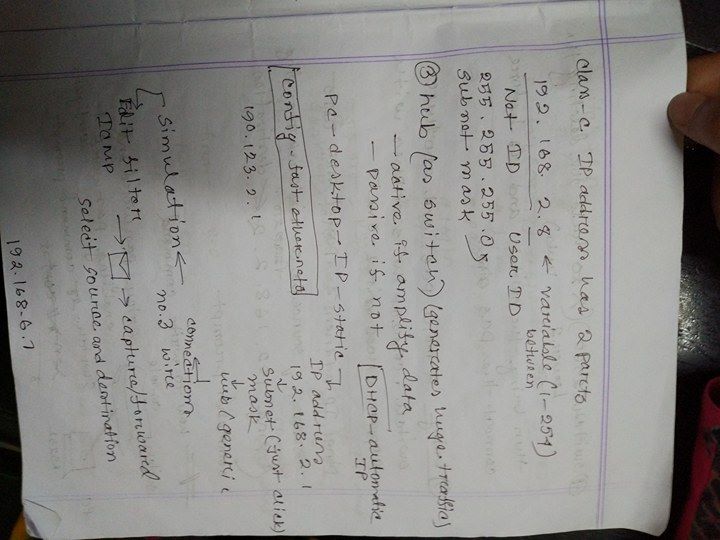 class-c IP address has 2 parts
192.168.2.8 ← variable (1-254)
between
Net ID User ID
255.255.255.0
subnet mask
③ hub (as switch) (generates huge traffic)
- active is amplify data
- passive is not
DHCP-automatic
IP
PC-desktop-IP-static
IP address
192.168.2.1
config-fast ethernet0
subnet (just click)
mask
190.123.2.1
hub (generic
connections
simulation ← no.3 wire
Edit filter → → capture/forward
ICMP
select source and destination
192.168.6.7